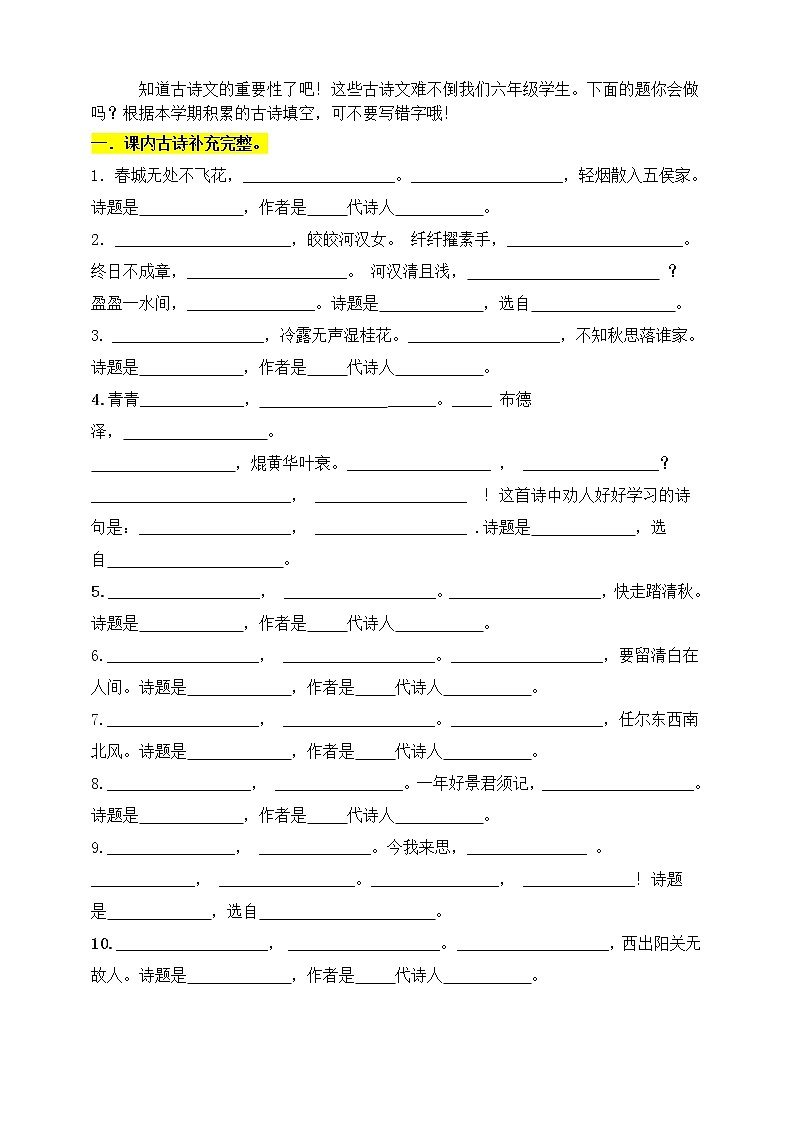 知道古诗文的重要性了吧！这些古诗文难不倒我们六年级学生。下面的题你会做
吗？根据本学期积累的古诗填空，可不要写错字哦！
一．课内古诗补充完整。
1．春城无处不飞花，___________________。___________________，轻烟散入五侯家。
诗题是_____________，作者是_____代诗人___________。
2．______________________，皎皎河汉女。 纤纤擢素手，______________________。
终日不成章，____________________。 河汉清且浅，________________________ ？
盈盈一水间，________________。诗题是_____________，选自__________________。
3. ___________________，冷露无声湿桂花。___________________，不知秋思落谁家。
诗题是_____________，作者是_____代诗人___________。
4.青青_____________，______________________。_____ 布德
泽，__________________。
__________________，焜黄华叶衰。__________________ ， _________________？
_________________________， ___________________ ！这首诗中劝人好好学习的诗
句是：___________________， ___________________ .诗题是_____________，选
自______________________。
5.___________________， ___________________。___________________，快走踏清秋。
诗题是_____________，作者是_____代诗人___________。
6.___________________， ___________________。___________________，要留清白在
人间。诗题是_____________，作者是_____代诗人___________。
7.___________________， ___________________。___________________，任尔东西南
北风。诗题是_____________，作者是_____代诗人___________。
8.__________________， ________________。一年好景君须记，___________________。
诗题是_____________，作者是_____代诗人___________。
9.________________， ______________。今我来思，_______________ 。
_____________， _________________。________________， ______________！诗题
是_____________，选自______________________。
10.___________________， ___________________。___________________，西出阳关无
故人。诗题是_____________，作者是_____代诗人___________。